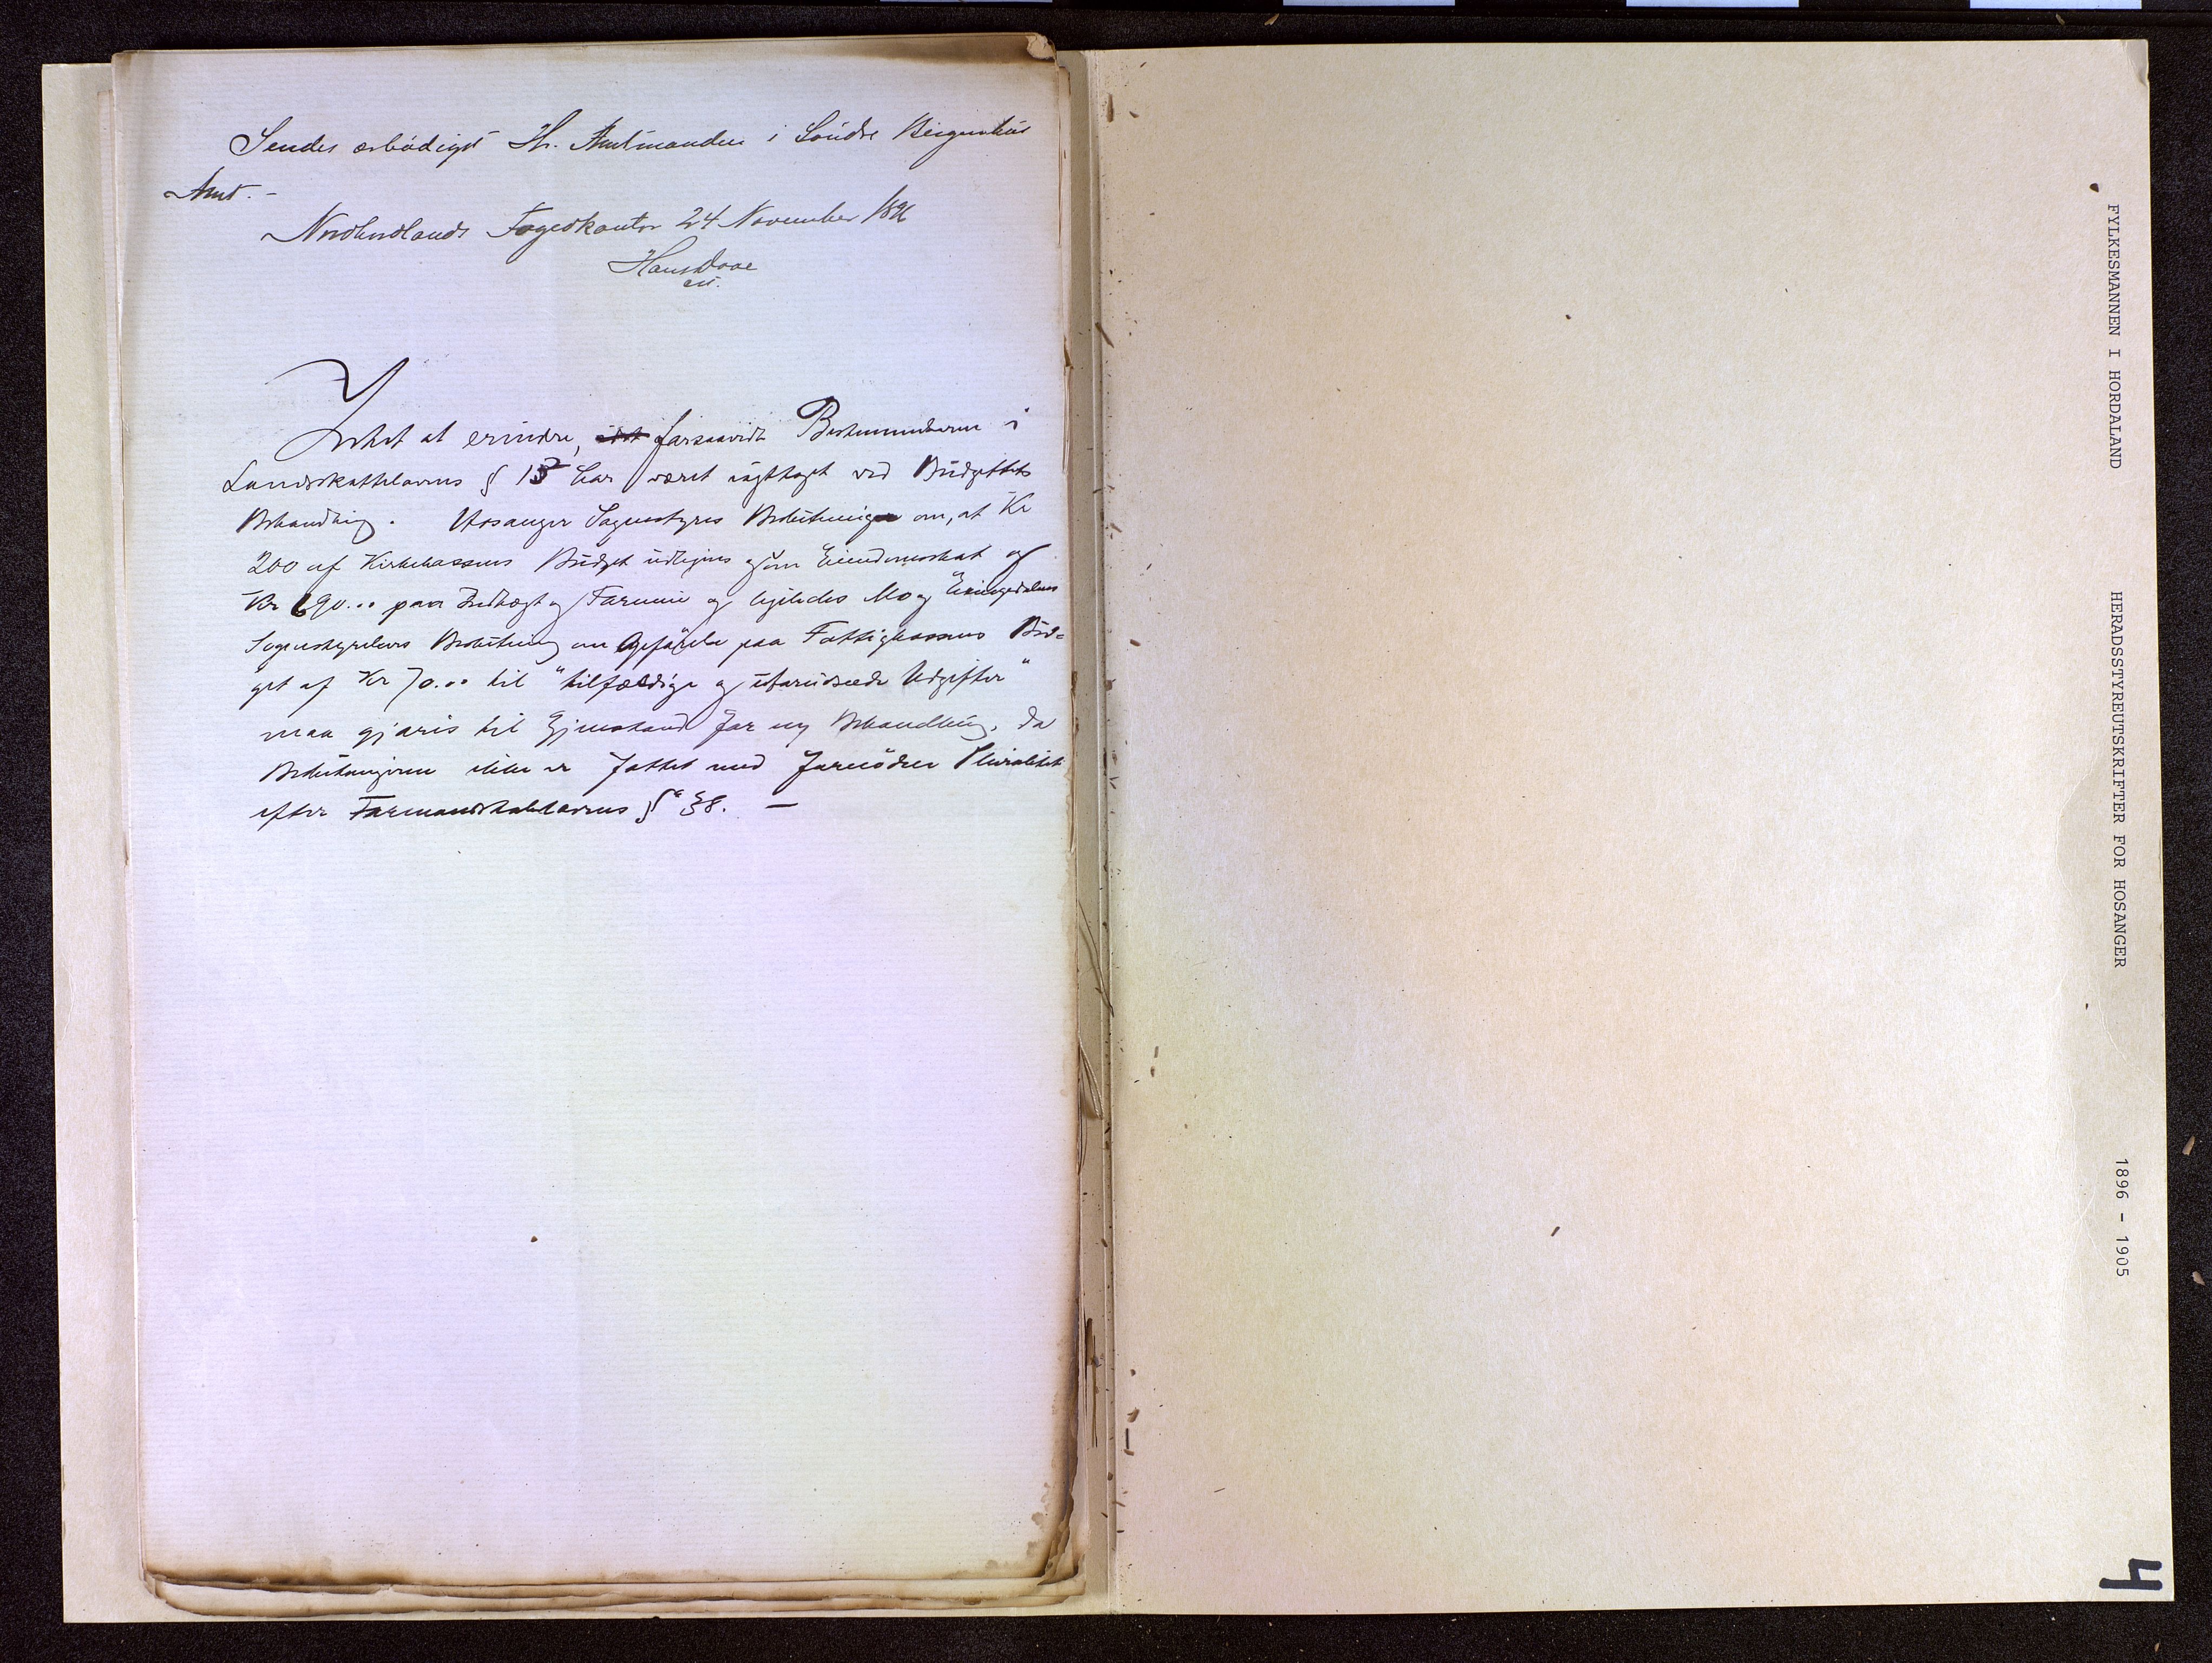 Sendes ærbødigst Hr. Amtmanden i Søndre Bergenhus
Amt.-
Nordhordlands Fogedkontor 24 November 1896
Hans Dooe
Intet at erindre, forsaavidt Bestemmelserne i
Landsskattelovens § 13 har været iagttaget ved Budgettets
Behandling. Hosanger Sognestyres Beslutninger om, at Kr
200 af Kirkekassens Budget udlignes som Eiendomsskat og
Kr 690.00 paa Indtægt og Formue og ligeledes Mo og Eksingedalens
Sognestyrelses Beslutning om Opførelse paa Fattigkassens Bud=
get af Kr 70.00 til "tilfældige og uforudseede Udgifter"
maa gjøres til Gjenstand for ny Behandling, da
Beslutningerne ikke er fattet med fornöden Pluralitet
efter Formandskabslovens § 38. —
FYLKESMANNEN I HORDALAND
HERADSSTYREUTSKRIFTER FOR HOSANGER
1896 - 1905
4